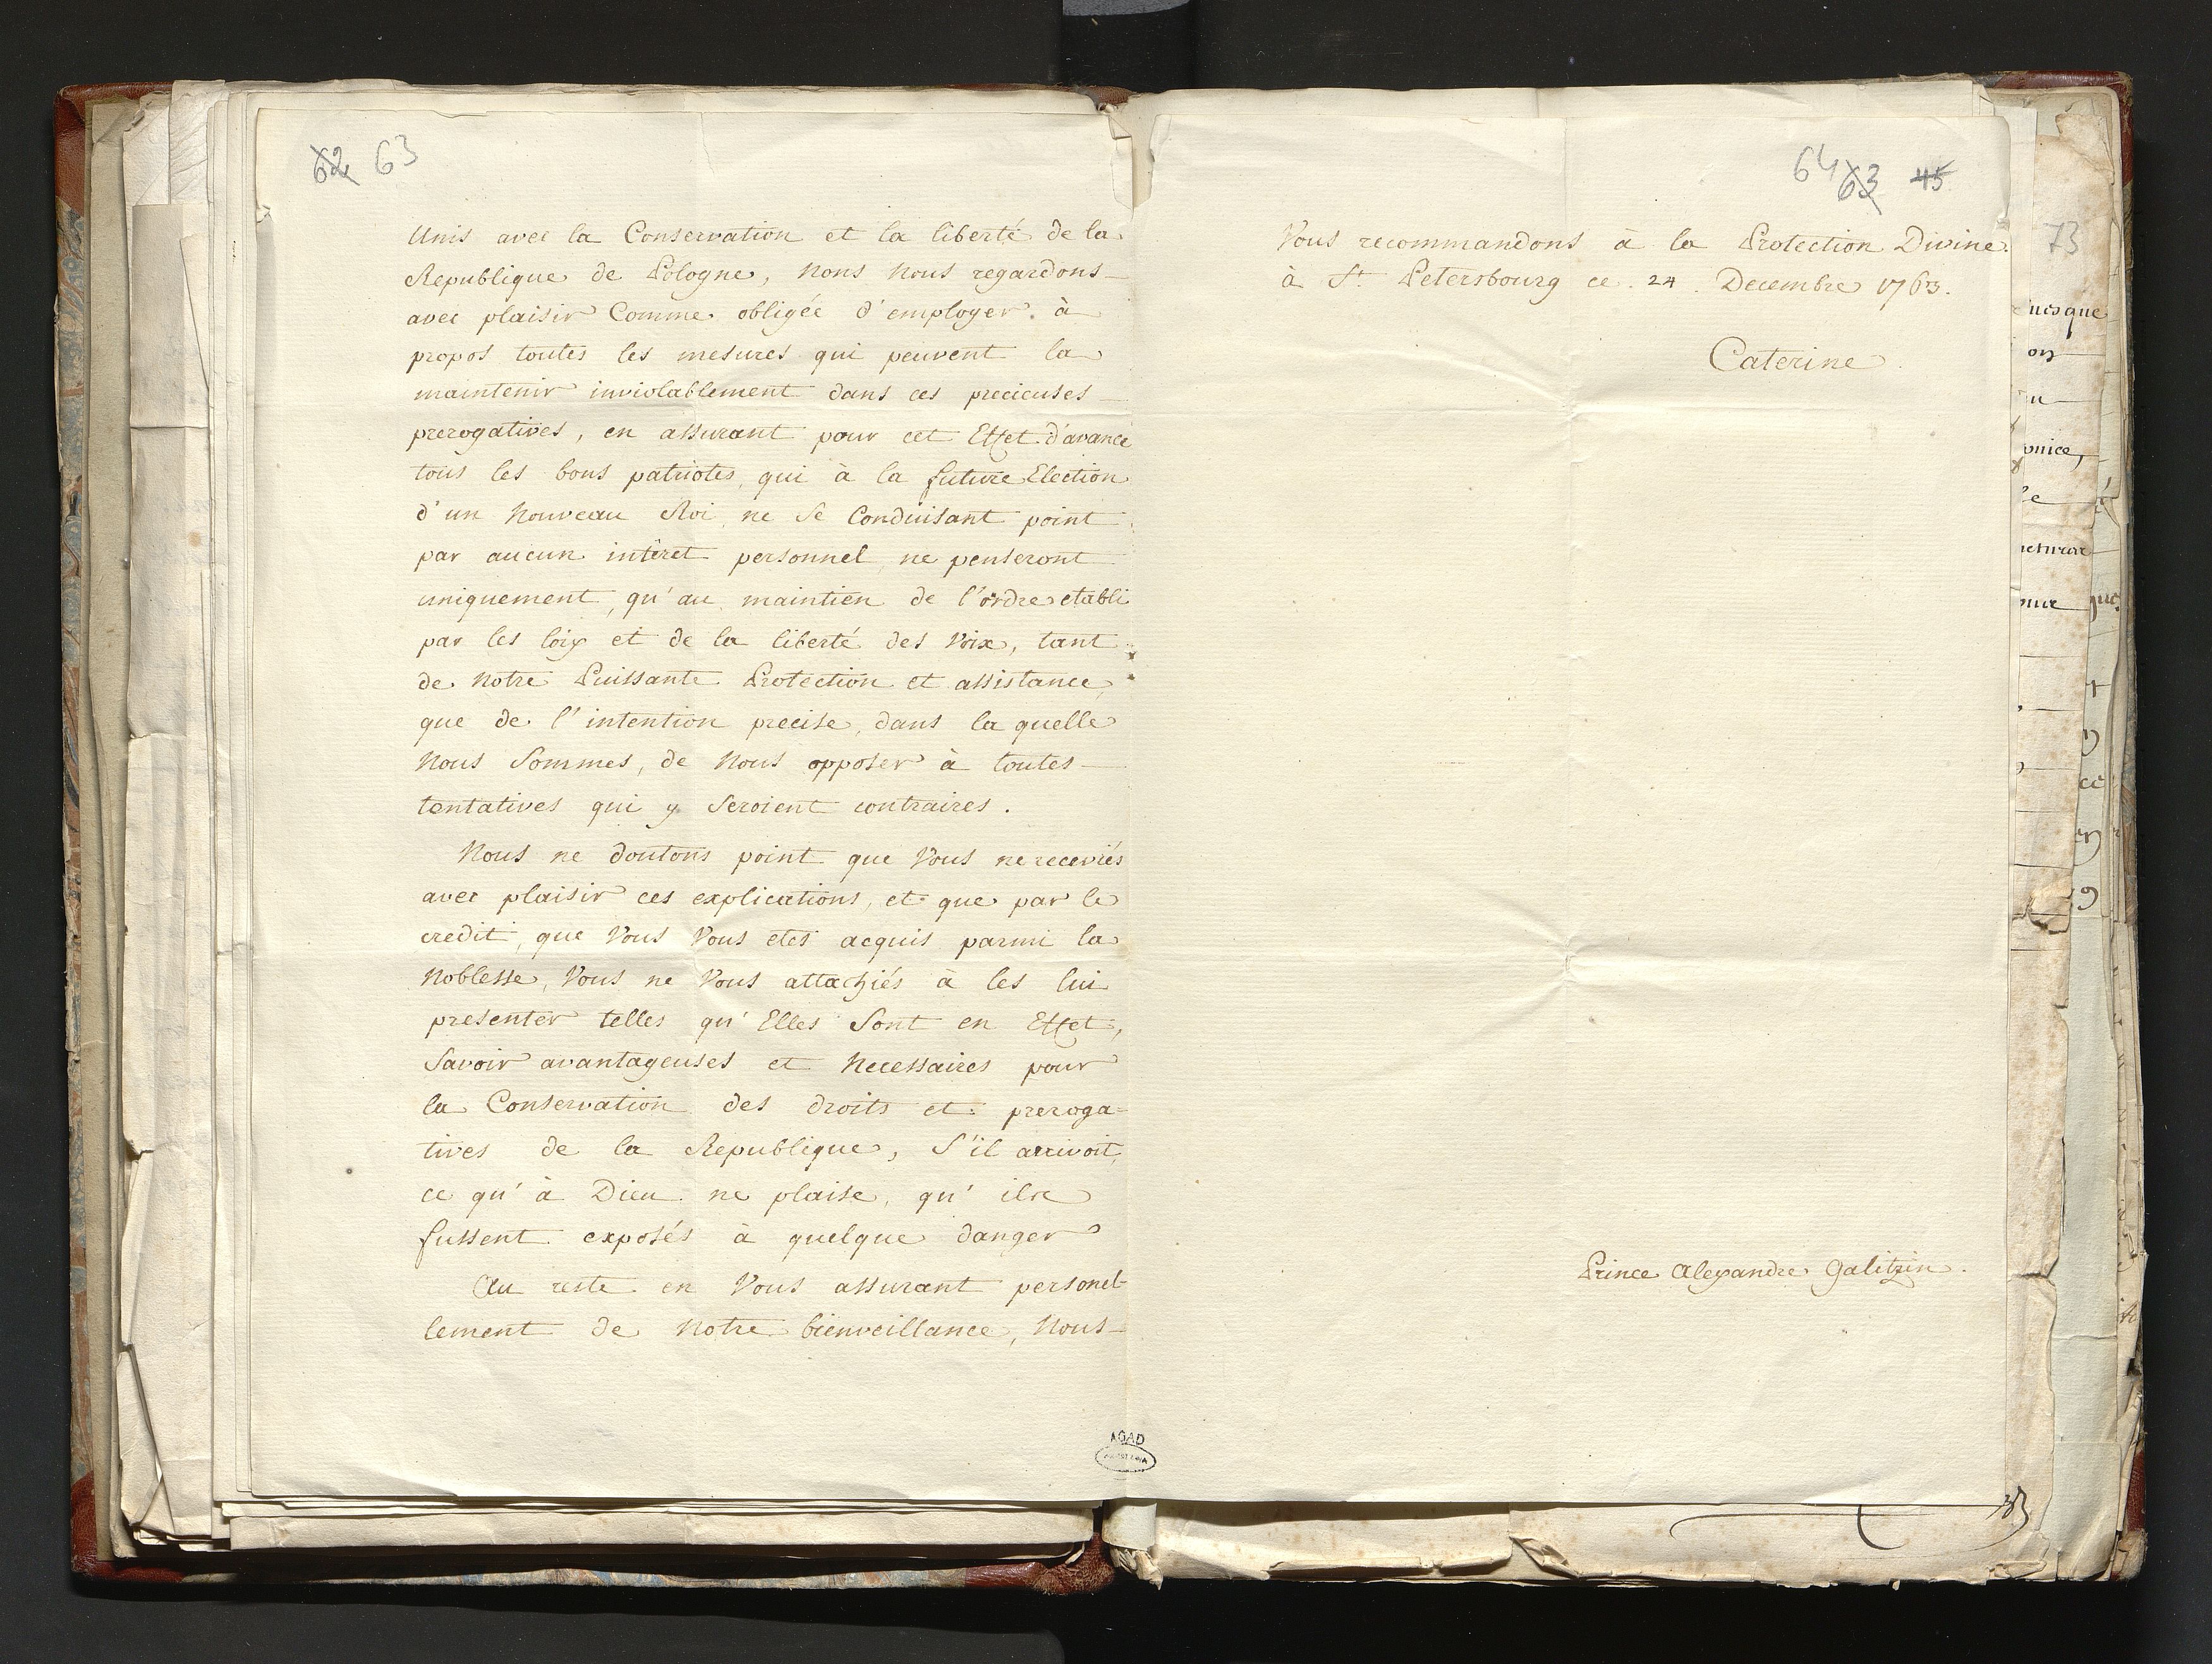 62 63
Unis avec la Conservation et la liberté de la
Republique de Pologne, Nous Nous regardons
avec plaisir Comme obligée d'employer à
propos toutes les mesures qui peuvent la
maintenir inviolablement dans ces precieuses
prerogatives, en assurant pour cet Effet d'avance
tous les bons patriotes, qui à la future Election
d'un Nouveau Roi, ne Se Conduisant point
par aucun intèret personnel, ne penseront
uniquement, qu'au maintien de l'ordre etabli
par les loix et de la liberté des Voix, tant
de Notre Puissante Protection et assistance,
que de l'intention precise, dans la quelle
Nous Sommes, de Nous opposer à toutes
tentatives qui y Seroient contraires.
Nous ne doutons point que Vous ne receviés
avec plaisir ces explications, et que par le
credit, que Vous Vous etes acquis parmi la
Noblesse, Vous ne Vous attachiés à les lui
presenter telles qu'Elles Sont en Effet,
Savoir avantageuses et Necessaires pour
la Conservation des droits et preroga=
tives de la Republique, S'il arrivoit,
ce qu'à Dieu ne plaise, qu'ils
fussent exposés à quelque danger
Au reste en Vous assurant personel-
lement de Notre bienveillance, Nous
AGAD
64 63 45
Vous recommandons à la Protection Divine.
à St. Petersbourg ce 24. Decembre 1763.
Caterine
Prince Alexandre Galitzin.
73
on
le